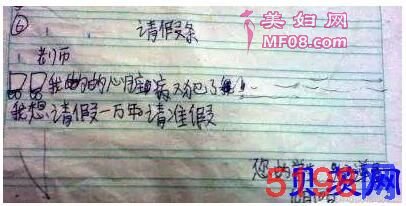 美妇网
MF08.com
⑥ 请假条
老师
我的的心脏病又犯了
我想请假一万 请准假
您的
5198 贝投网